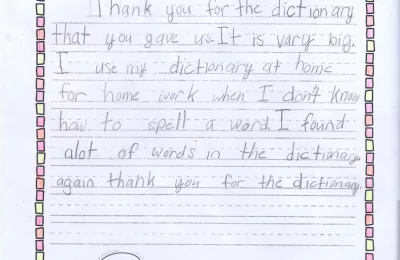 Thank you for the dictionary
that you gave us. It is vary big.
I use my dictionary at home
for home work when I don't know
how to spell a word. I found
alot of words in the dictionary
again thank you for the dictionary.